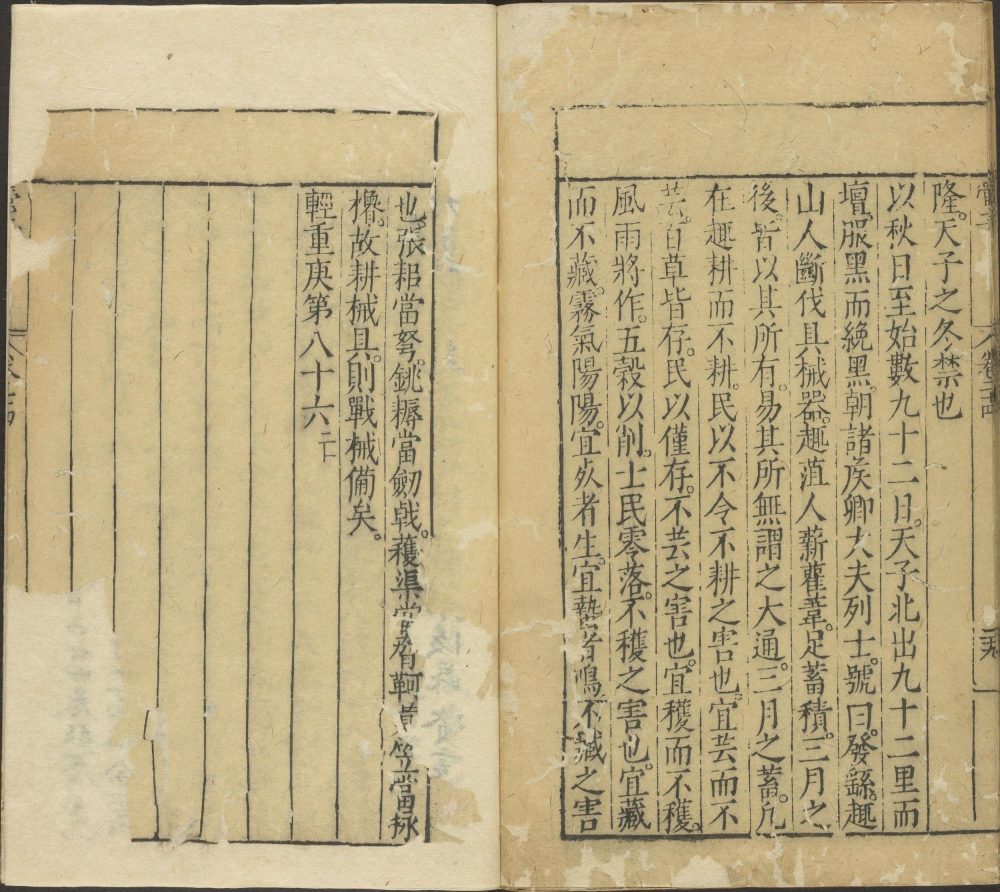 管子
卷二十四
隆。天子之冬禁也
以秋日至始數九十二日。天子北出九十二里而
壇。服黑而絻黑。朝諸矦卿大夫列士。號曰。發繇。趣
山人斷伐具械器。趣菹人薪雚葦。足蓄積。三月之
後。皆以其所有。易其所無。謂之大通。三月之蓄。凢
在趣耕而不耕。民以不令。不耕之害也。宜芸而不
芸。百草皆存。民以僅存。不芸之害也。宜穫而不穫。
風雨將作。五穀以削。士民零落。不穫之害也。宜藏
而不藏。霧氣陽陽。宜死者生。宜蟄者鳴。不藏之害
也。張耜當弩。銚耨當劒戟。穫渠當脅軻。蓑笠當捄
櫓。故耕械具。則戰械備矣。
輕重庚第八十六亡